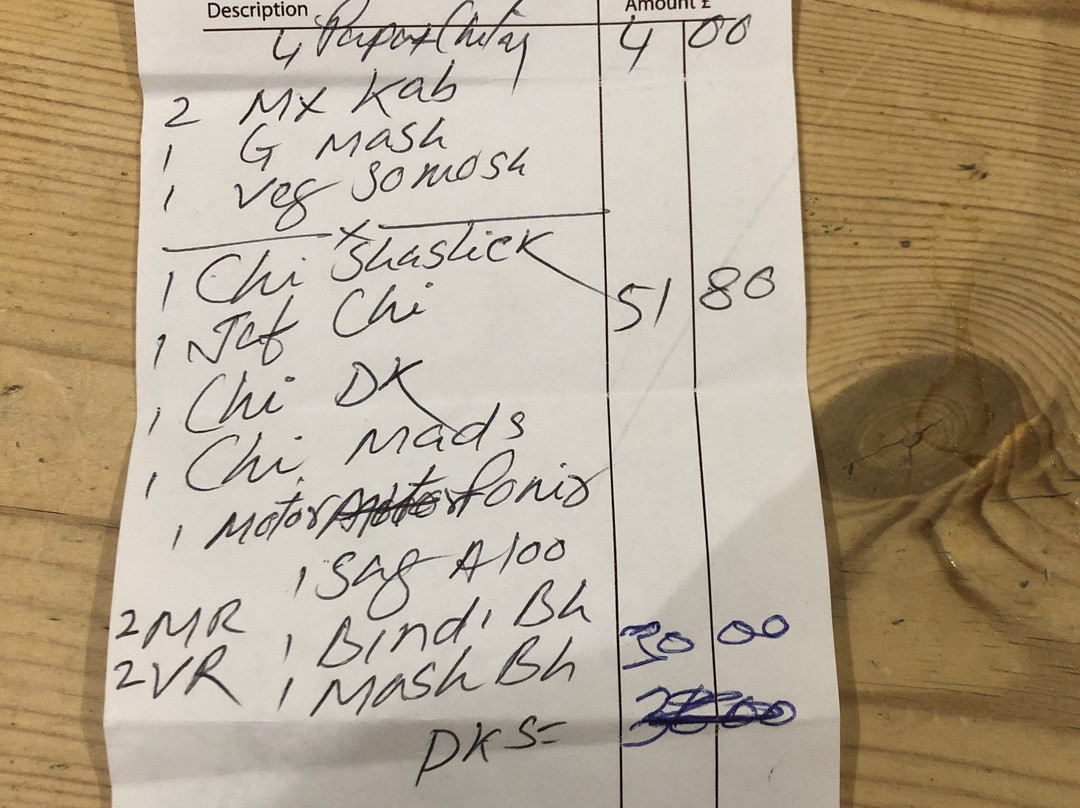 Description Amount £
4 Papar Chtny 4 00
2 Mx Kab
1 G Mash
1 Veg Somosh
x
1 Chi Shaslick 51 80
1 Jaf Chi
1 Chi DK
1 Chi Mads
1 Motor Ponir
1 Sag Aloo
2 MR 1 Bindi Bh 30 00
2 VR 1 Mash Bh
DKS=